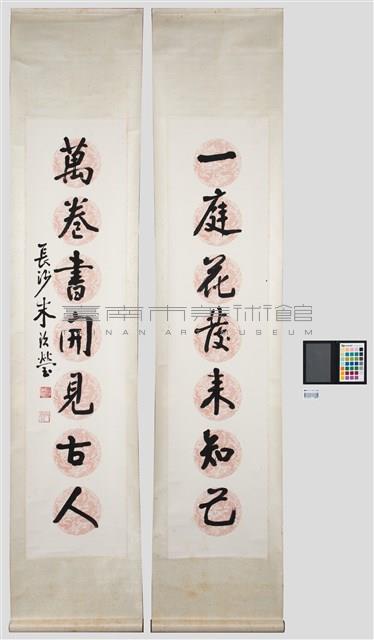 一庭花發來知己
萬卷書開見古人
長沙朱玖瑩
臺南市美術館
TAINAN ART MUSEUM